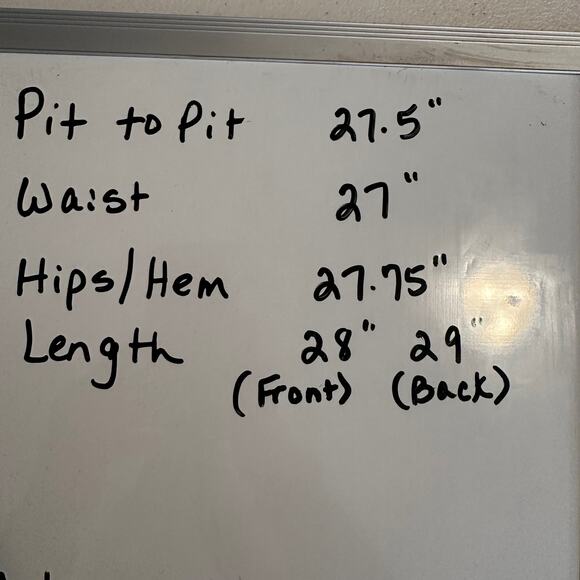 Pit to Pit 27.5"
Waist 27"
Hips/Hem 27.75"
Length 28" 29"
(Front) (Back)